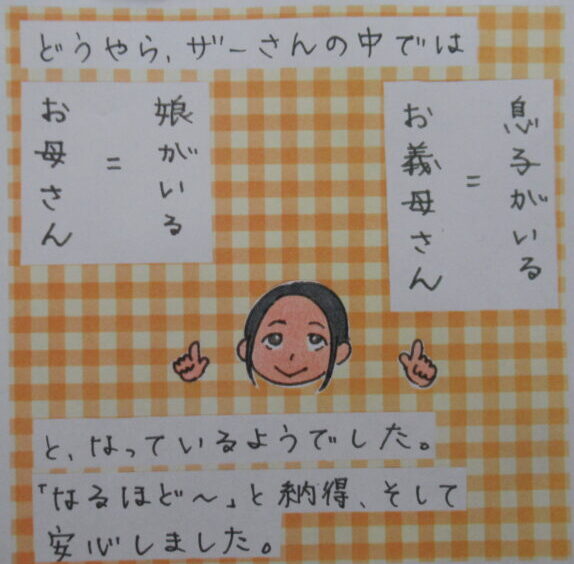 どうやら、ザーさんの中では
息子がいる
=
お義母さん
娘がいる
=
お母さん
と、なっているようでした。
「なるほど〜」と納得、そして
安心しました。